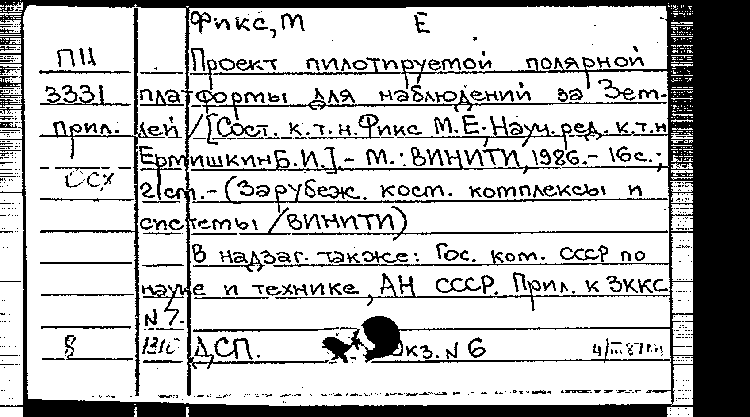 Фикс, М Е
ПЦ Проект пилотируемой полярной
3331 платформы для наблюдений за Зем-
прил. лей / [Сост. к.т.н. Фикс М.Е., Науч. ред. к.т.н
Ермишкин Б.И.]. - М.: ВИНИТИ, 1986. - 16с.;
21см. - (Зарубеж. косм. комплексы и
системы / ВИНИТИ)
В надзаг. также: Гос. ком. СССР по
науке и технике, АН СССР. Прил. к ЗККС
N 7.
8 ДСП. Экз. N 6